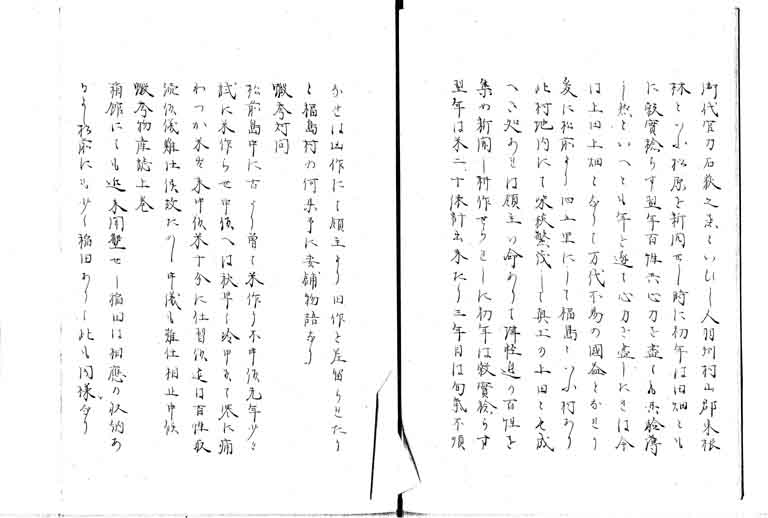 御代官刀石萩之丞といひし人羽州村山郡東根
林といふ小松原を新開せし時に初年は田畑とも
に穀實稔らす翌年百姓共心力を盡すも不稔薄
し然といへとも年を逐て心力を盡したるは今
は上田上畑と成て万代不易の國益とかせり
爰に松前より四五里にして福島といふ村あり
此村地内にて 繁茂して真土の上田とも成
へき処あれは領主の命ありて津軽邊の百姓を
集め新開し耕作せらせしに初年は穀實稔らす
翌年は米二十俵計出来たり三年目は旬氣不順
かせは凶作にて領主より田作を差留られたり
と福島村の何某予に委鋪物語なり
蝦夷灯問
松前島中に古より曽て米作り不申候先年少々
試に米作らせ申候へは秋早く冷申候て器に痛
わつか米も来申候米十分に仕習候迄は百姓取
流候儀難仕候故たのし申儀も難仕相止申候
蝦夷物産誌上巻
箱館にても近来開墾せし稲田は相應の収納あ
りと松前にも少く稲田ありて此も同様なり